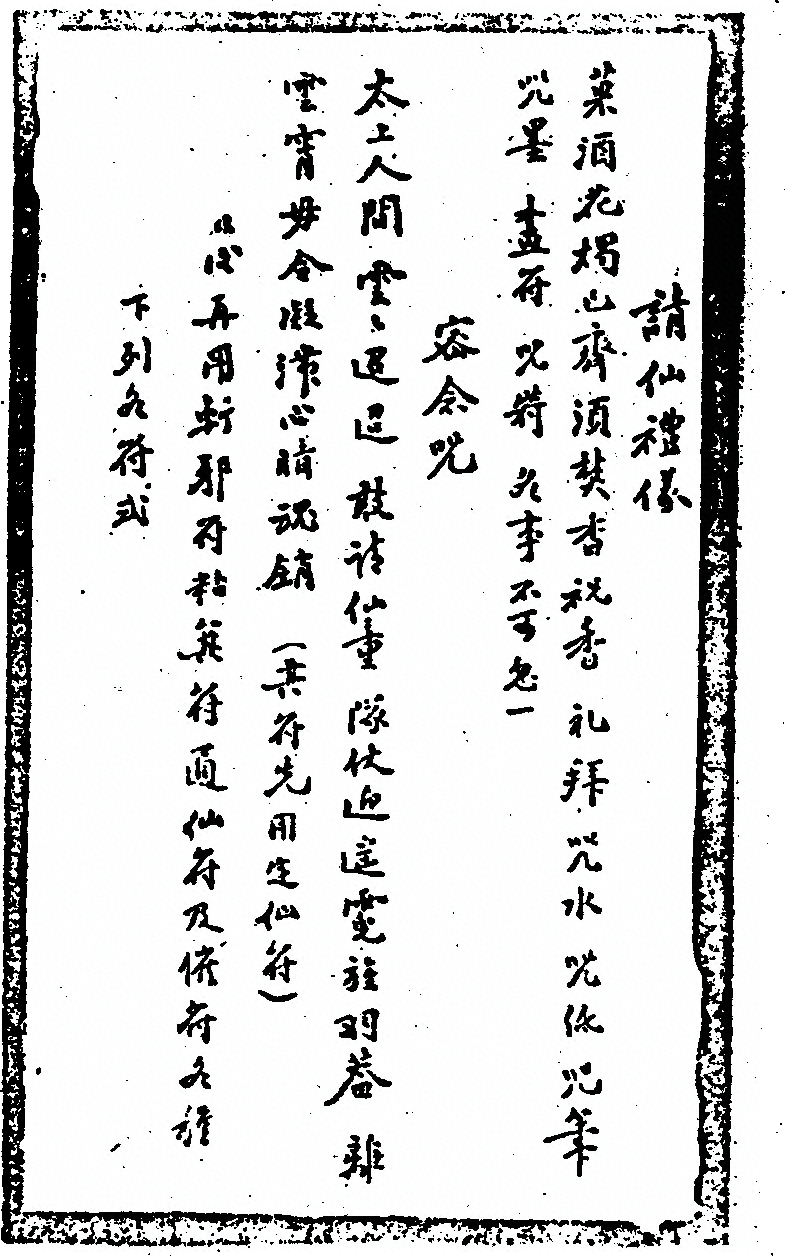 請仙禮儀
菓酒花燭已齊須焚香祝香礼拜咒水咒紙咒筆
咒墨 畫符咒符各事不可免一
密念咒
太上人間雲〻迢迢敢請仙童隊伏迎遙霓旌羽蓋離
雲霄毋令凝滯心暗魂銷(共符先用定仙符)
後再用斬邪符粘箕符通仙符及催符各種
下列各符式